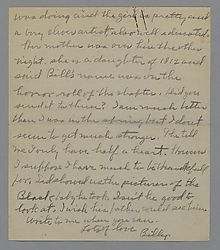 was doing and the girl is pretty, and
a big show artist also well educated.
Her mother was over here the other
night, she is a daughter of 1812 and
said Bill's name was on the
honor roll of the chapter. Did you
send it to them? I am much better
than I was in the spring but I don't
seem to get much stronger. They tell
me I only have half a heart. However
I suppose I have much to be thankful
for. Ted showed us the pictures of the
Black baby he took. Isn't he good to
look at. I wish his father could see him.
Write to me when you can.
Lots of love